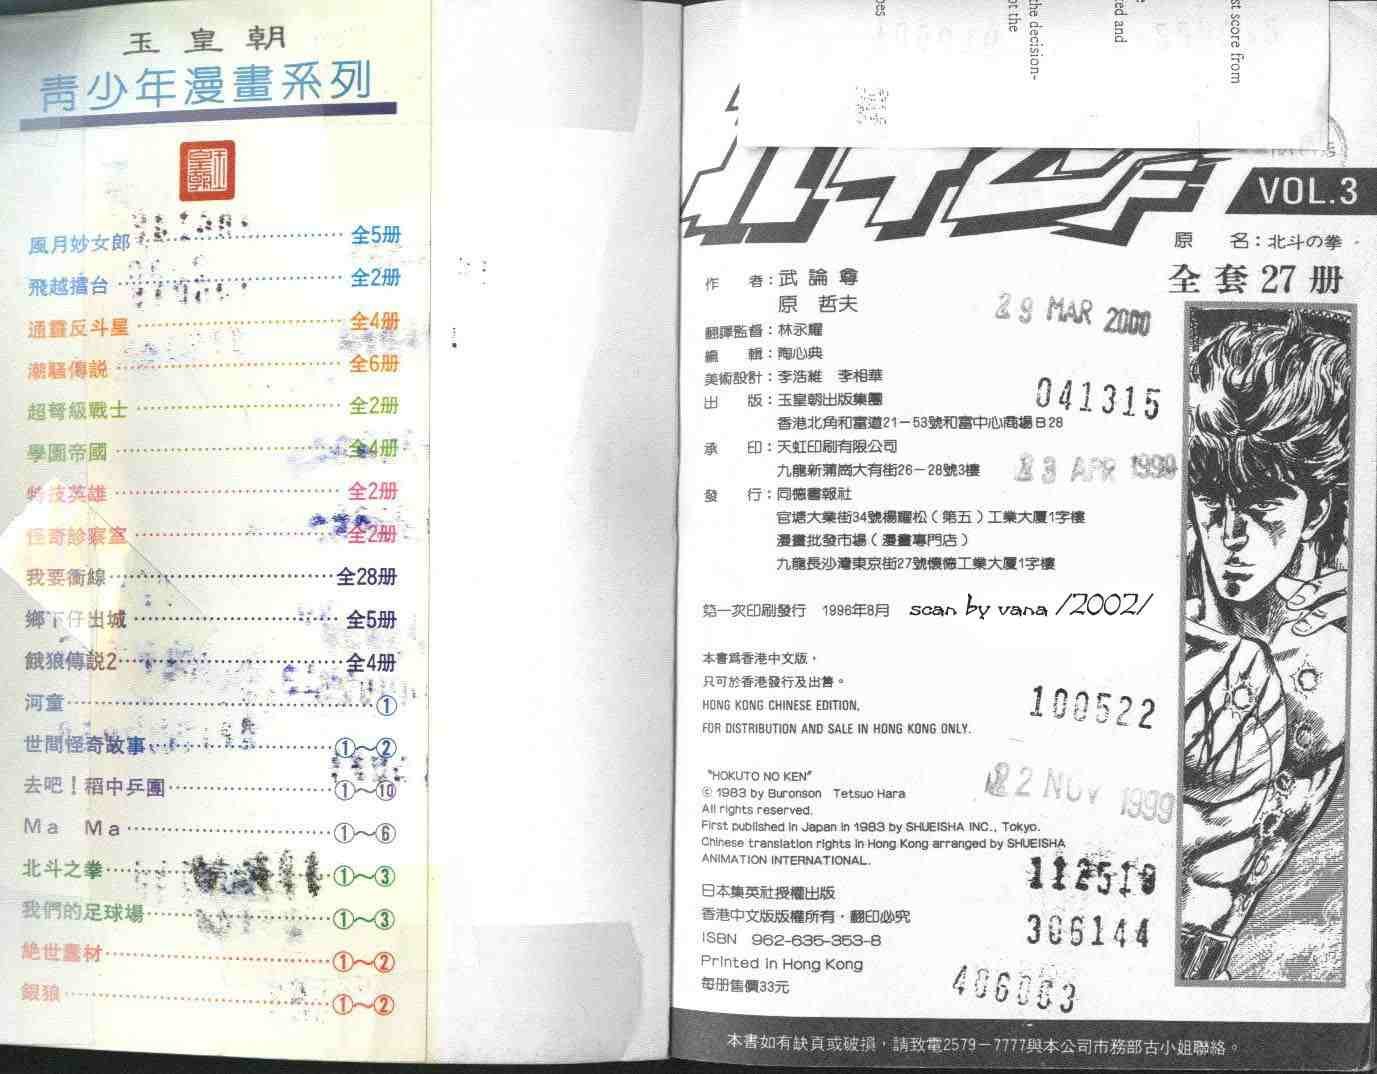 玉皇朝
青少年漫畫系列
風月妙女郎 全5册
飛越擂台 全2册
通靈反斗星 全4册
潮騷傳説 全6册
超弩級戰士 全2册
學園帝國 全4册
特技英雄 全2册
怪奇診察室 全2册
我要衝線 全28册
鄉下仔出城 全5册
餓狼傳説2 全4册
河童 ①
世間怪奇故事 ①～②
去吧！稻中乒團 ①～⑩
Ma Ma ①～⑥
北斗之拳 ①～③
我們的足球場 ①～③
絕世畫材 ①～②
銀狼 ①～②
st score from
ted and
the decision-
ot the
VOL.3
原 名：北斗の拳
全套27册
作 者：武論尊
原 哲夫
翻譯監督：林永耀
編 輯：陶心典
美術設計：李浩維 李相華
出 版：玉皇朝出版集團
香港北角和富道21－53號和富中心商場B28
承 印：天虹印刷有限公司
九龍新蒲崗大有街26－28號3樓
發 行：同德書報社
官塘大業街34號楊耀松（第五）工業大厦1字樓
漫畫批發市場（漫畫專門店）
九龍長沙灣東京街27號懷德工業大厦1字樓
第一次印刷發行 1996年8月 scan by vana /2002/
本書爲香港中文版，
只可於香港發行及出售。
HONG KONG CHINESE EDITION,
FOR DISTRIBUTION AND SALE IN HONG KONG ONLY.
"HOKUTO NO KEN"
© 1983 by Buronson Tetsuo Hara
All rights reserved.
First published in Japan in 1983 by SHUEISHA INC., Tokyo.
Chinese translation rights in Hong Kong arranged by SHUEISHA
ANIMATION INTERNATIONAL.
日本集英社授權出版
香港中文版版權所有，翻印必究
ISBN 962-635-353-8
Printed in Hong Kong
每册售價33元
29 MAR 2000
041315
23 APR 1999
100522
22 NOV 1999
112519
306144
406003
本書如有缺頁或破損，請致電2579－7777與本公司市務部古小姐聯絡。